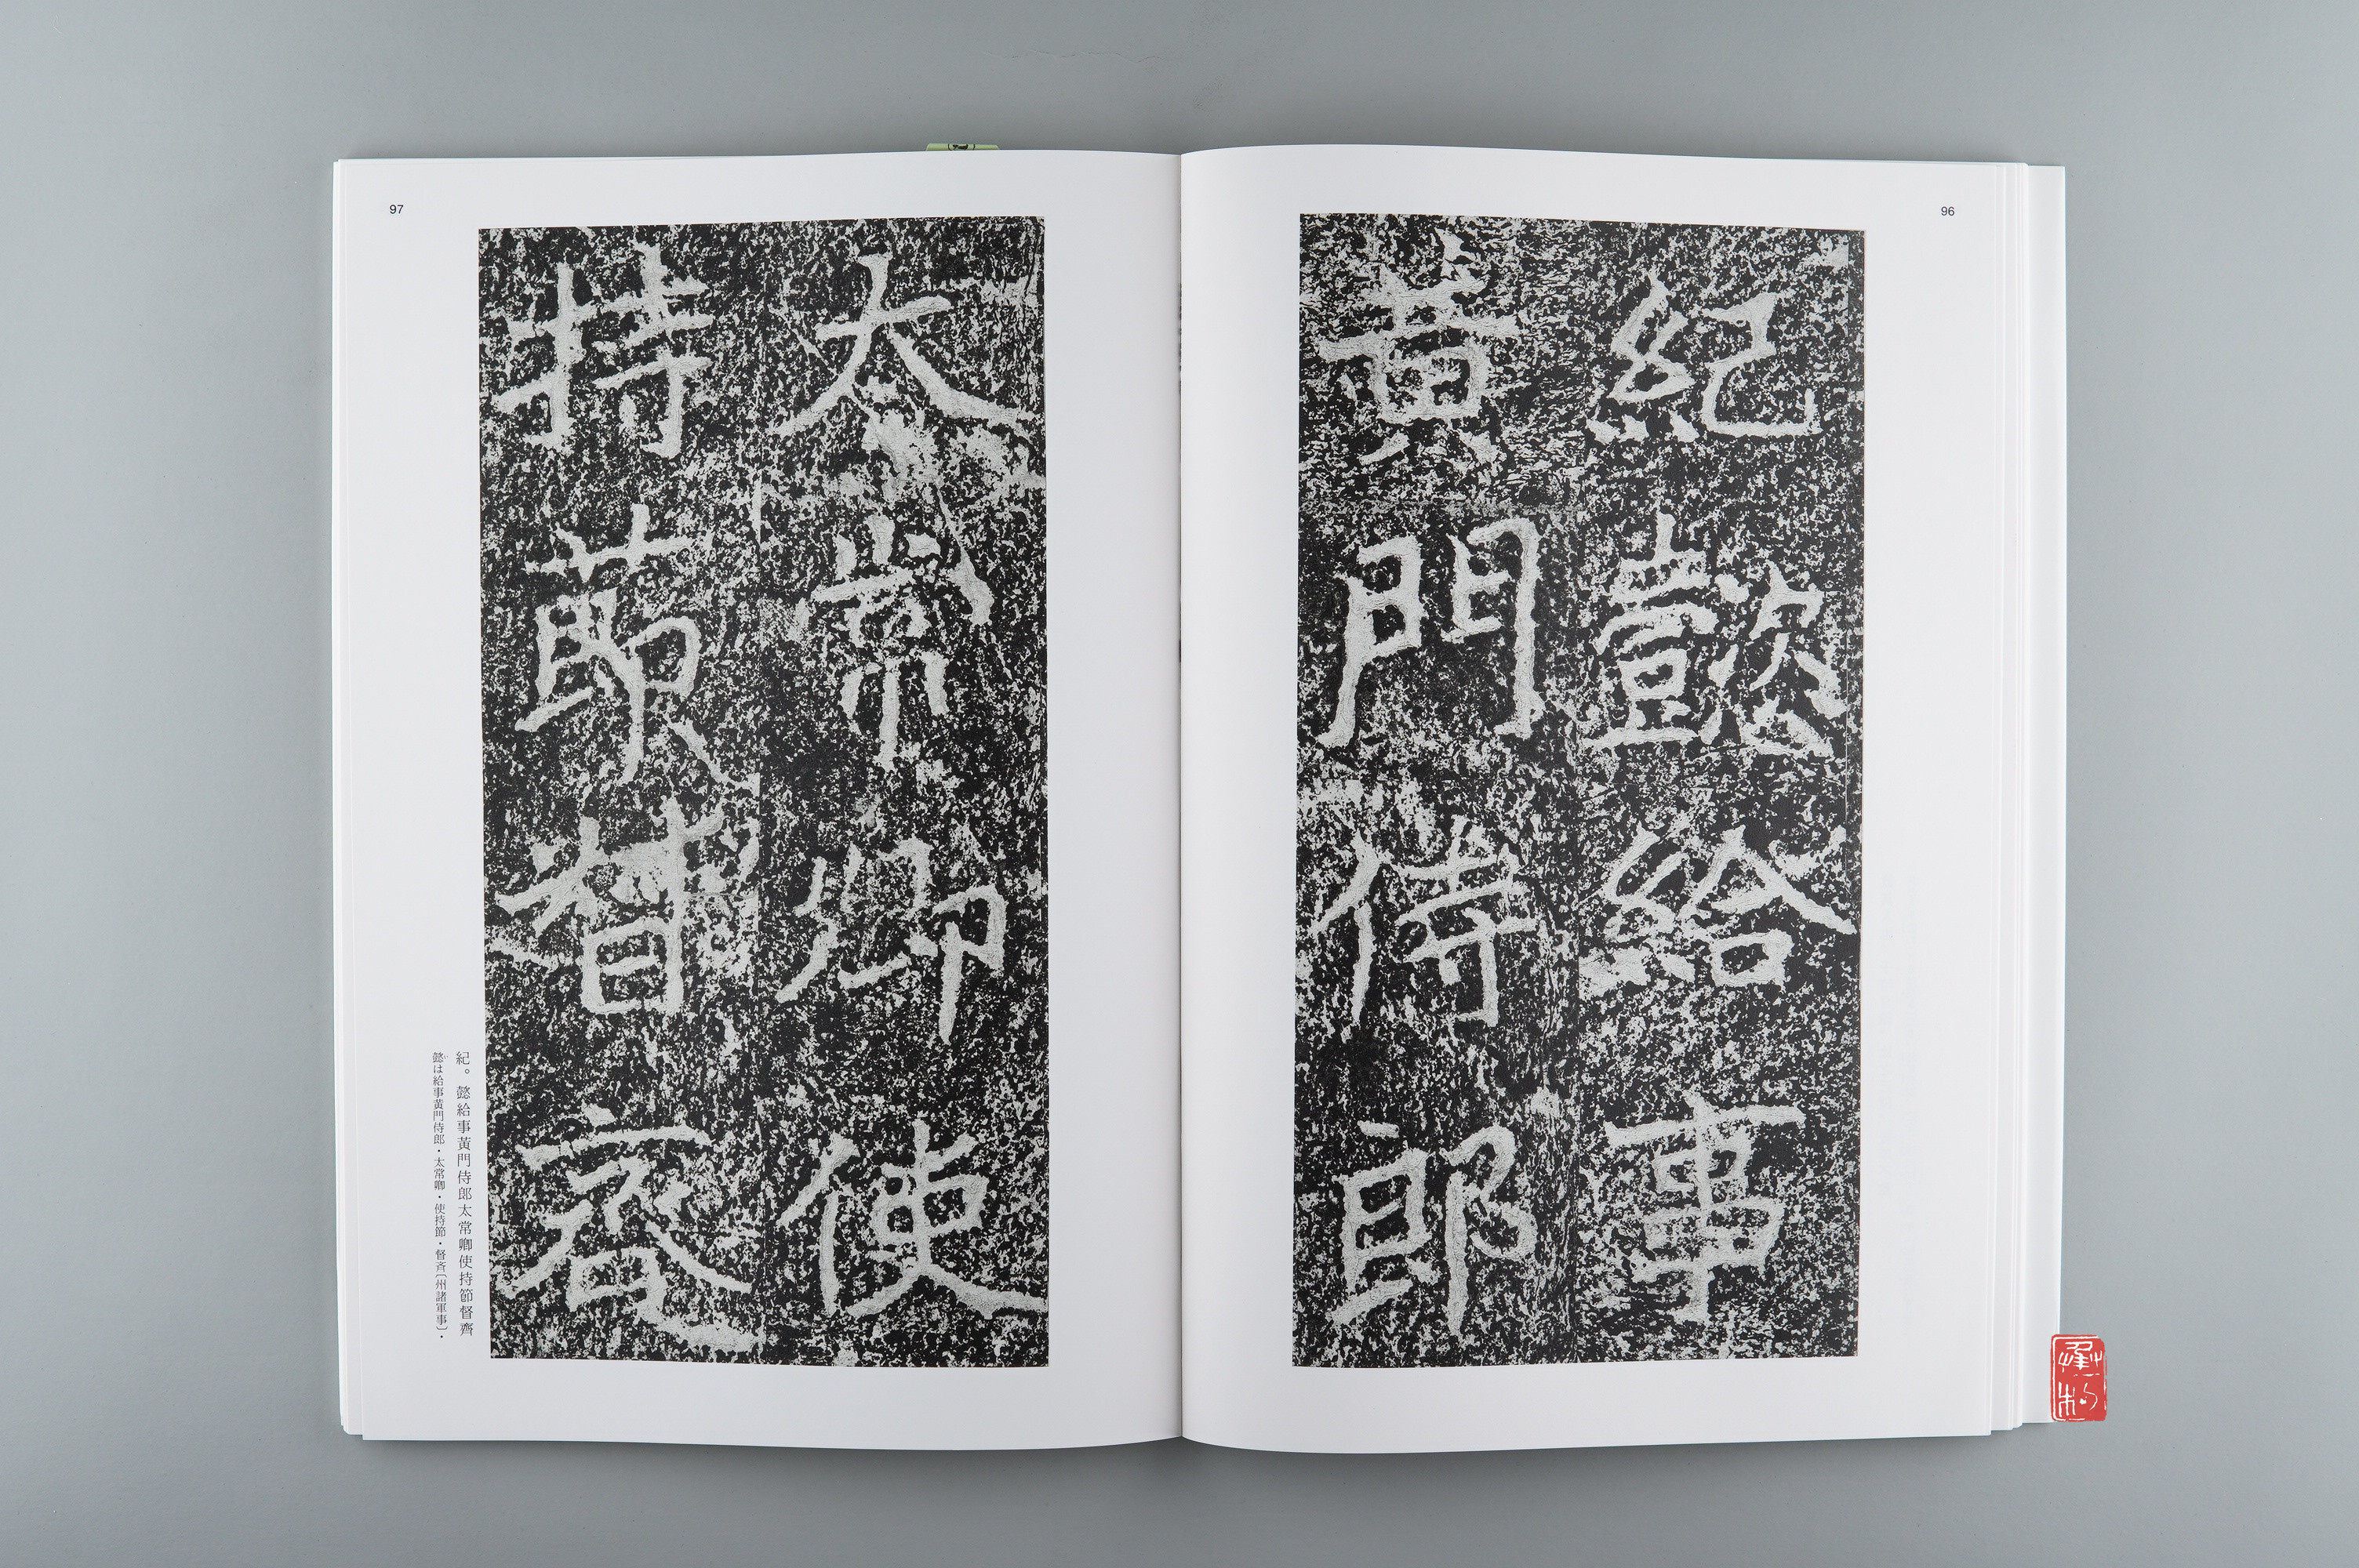 96
紀懿給事
黃門侍郎
97
太常卿使
持節督齊
紀。懿給事黃門侍郎太常卿使持節督齊
懿は給事黃門侍郎・太常卿・使持節・督斉〔州諸軍事〕・